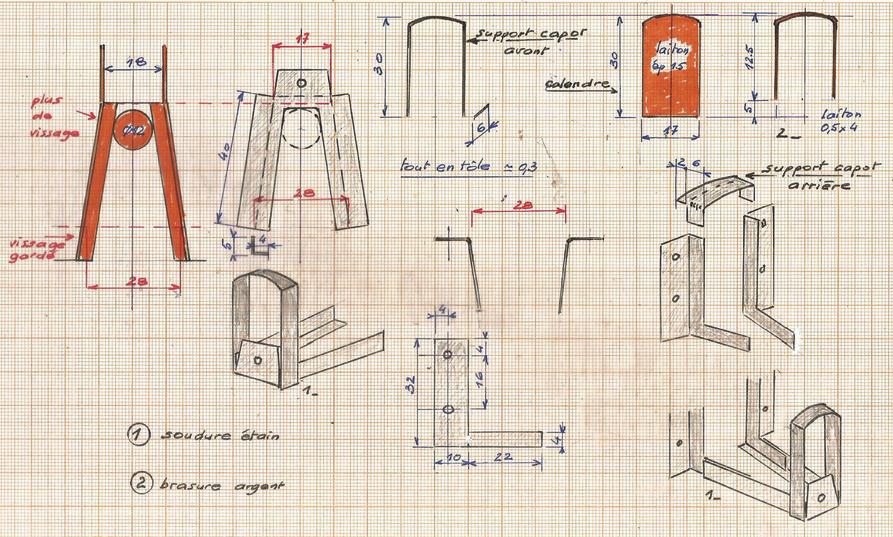 18
plus
de
vissage
vissage
gardé
28
17
40
28
5
4
30
support capot
avant
6
tout en tôle ≃ 0,3
calandre
30
laiton
ép 1.5
17
12.5
5
2_
laiton
0,5 x 4
2 6
support capot
arrière
28
4
32
4
16
4
10 22
1_
1_
1 soudure étain
2 brasure argent